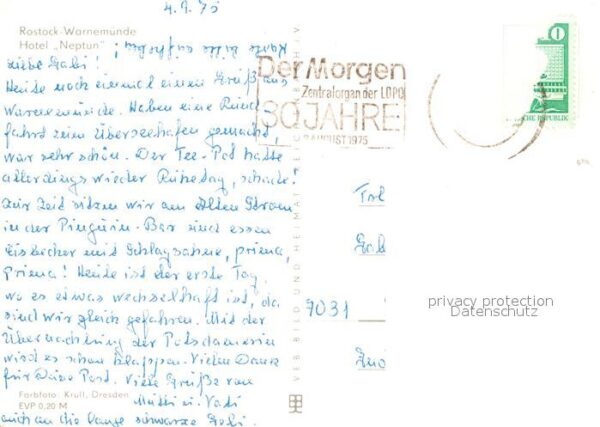 4.9.75
Rostock-Warnemünde
Hotel „Neptun"
Karte bitte aufheben!
Liebe Gabi!
Heute noch einmal einen Gruß aus
Warnemünde. Haben eine Rund
fahrt zum Überseehafen gemacht,
war sehr schön. Der Tee-Pott hatte
allerdings wieder Ruhetag, schade!
Zur Zeit sitzen wir am Alten Strom
in der Pinguin-Bar und essen
Eisbecher mit Schlagsahne, prima,
prima! Heute ist der erste Tag,
wo es etwas wechselhaft ist, da
sind wir gleich gefahren. Mit der
Übernachtung der Potsdamerin
wird es schon klappen. Vielen Dank
für Deine Post. Viele Grüße von
Mutti u. Vati
auch an die lange schwarze Gabi.
Farbfoto: Krull, Dresden
EVP 0,20 M
VEB BILD UND HEIMAT
Der Morgen
Zentralorgan der LDPD
30 JAHRE
AUGUST 1975
CHE REPUBLIK
7031
privacy protection
Datenschutz